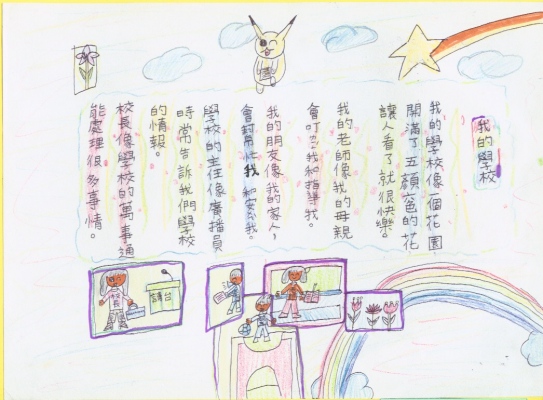 我的學校
我的學校像個花園
開滿了五顏六色的花
讓人看了就很快樂。
我的老師像我的母親
會叮嚀我和指導我。
我的朋友像我的家人，
會幫忙我和安慰我。
學校的主任像廣播員
時常告訴我們學校
的情報。
校長像學校的萬事通
能處理很多事情。
校長
講台